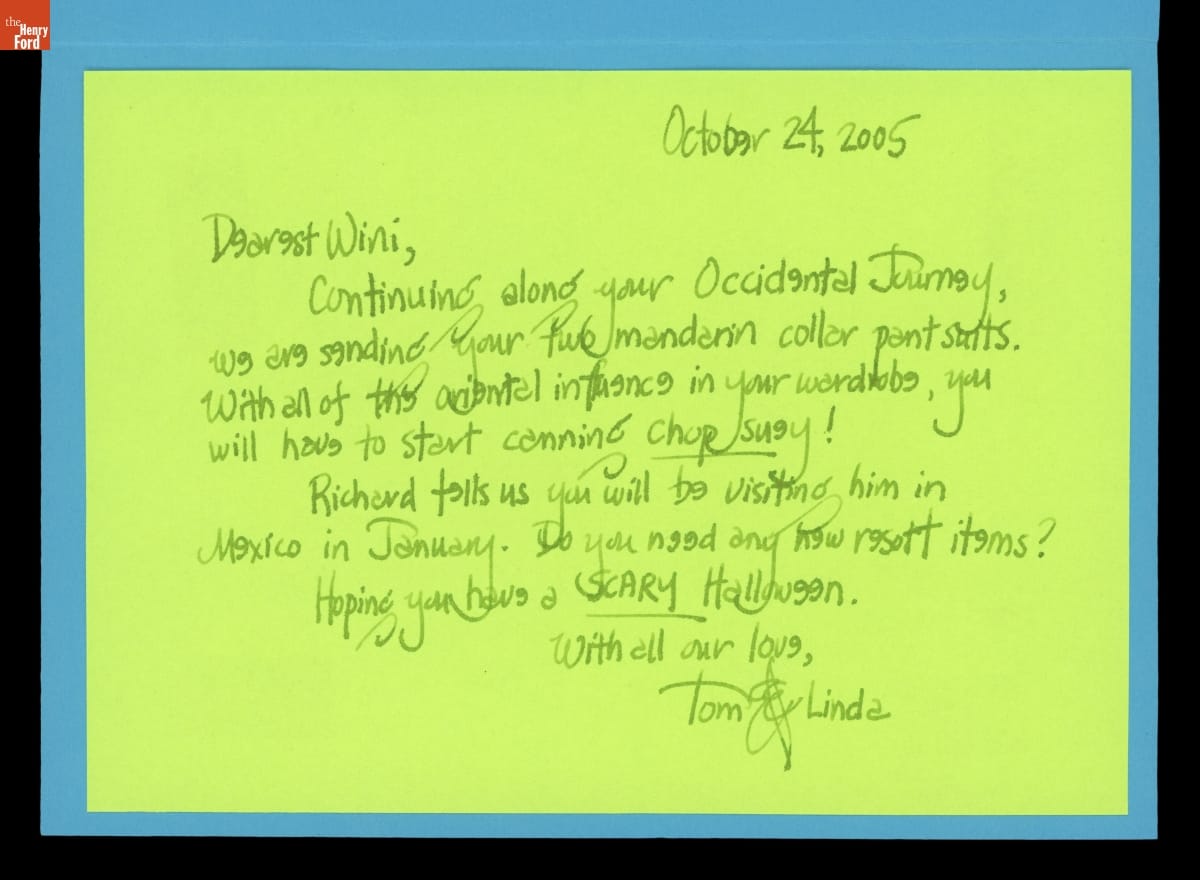 the
Henry
Ford
October 24, 2005
Dearest Wini,
Continuing along your Occidental Journey,
we are sending your two mandarin collar pantsuits.
With all of this oriental influence in your wardrobe, you
will have to start canning chop suey!
Richard tells us you will be visiting him in
Mexico in January. Do you need any new resort items?
Hoping you have a SCARY Halloween.
With all our love,
Tom & Linda